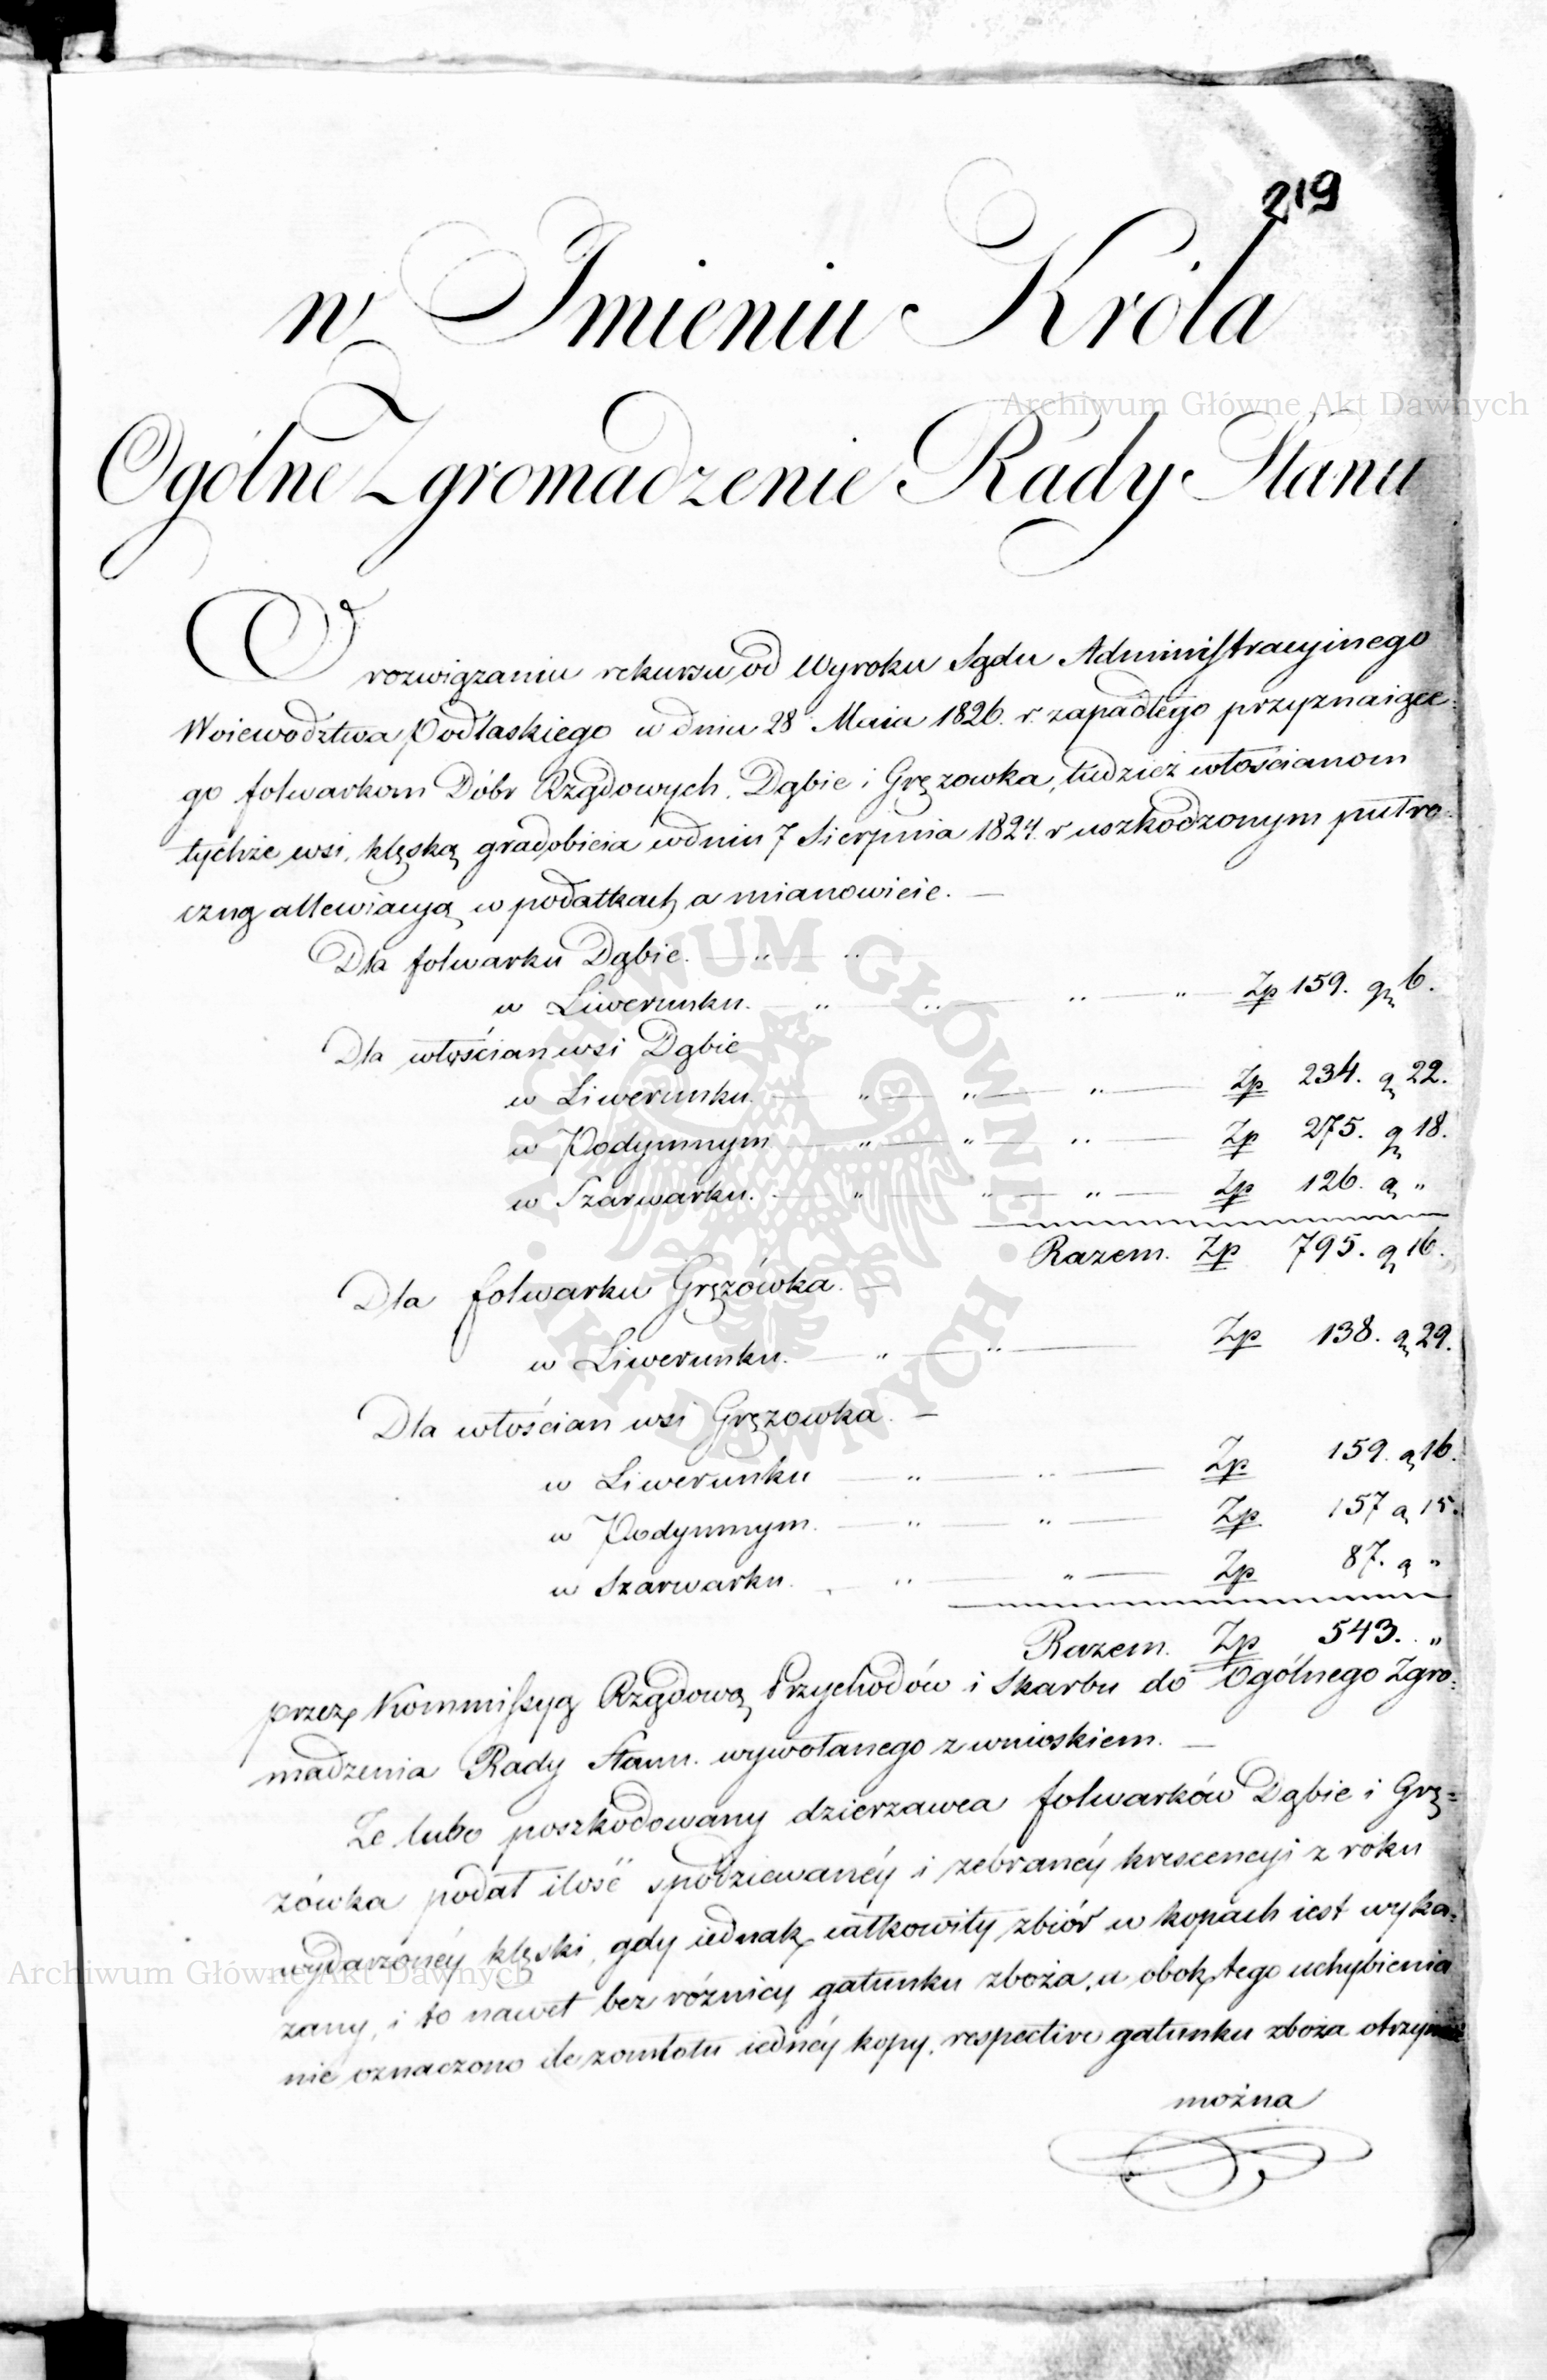 219
w Imieniu Króla
Archiwum Główne Akt Dawnych
Ogólne Zgromadzenie Rady Stanu
W rozwiązaniu rekursu od Wyroku Sądu Administracyinego
Woiewodztwa Podlaskiego w dniu 28 Maia 1826. r. zapadłego przyznaiące=
go folwarkom Dóbr Rządowych, Dąbie i Gręzowka, tudzież włościanom
tychże wsi, klęską gradobicia w dniu 7 Sierpnia 1824. r uszkodzonym putro=
czną allewiacyą w podatkach a mianowicie. —
Dla folwarku Dąbie. — „ — „
w Liwerunku. — „ — „ — „ — „ — Zp 159. gr 6.
Dla włościan wsi Dąbie
w Liwerunku. — „ — „ — „ — Zp 234. gr 22.
w Podymnym — „ — „ — „ — Zp 275. gr 18.
w Szarwarku. — „ — „ — „ — Zp 126. gr „
Razem. Zp 795. gr 16.
Dla folwarku Gręzówka. —
w Liwerunku. — „ — „ — Zp 138. gr 29.
Dla włościan wsi Gręzowka. —
w Liwerunku — „ — „ — Zp 159. gr 16.
w Podymnym. — „ — „ — Zp 157 gr 15.
w Szarwarku. — „ — „ — Zp 87. gr „
Razem. Zp 543. „
przez Kommissyą Rządową Przychodów i Skarbu do Ogólnego Zgro=
madzenia Rady Stanu. wywołanego z wnioskiem. —
Ze lubo poszkodowany dzierzawca folwarków Dąbie i Grę=
zówka podał ilość spodziewanéy i zebranéy krescencyi z roku
wydarzonéy klęski, gdy iednak całkowity zbiór w kopach iest wyka=
zany, i to nawet bez róźnicy gatunku zboża, a obok tego uchybienia
nie oznaczono ile z omłotu iednéy kopy, respective gatunku zboża otrzymać
można
Archiwum Główne Akt Dawnych
ARCHIWUM GŁÓWNE · AKT DAWNYCH ·